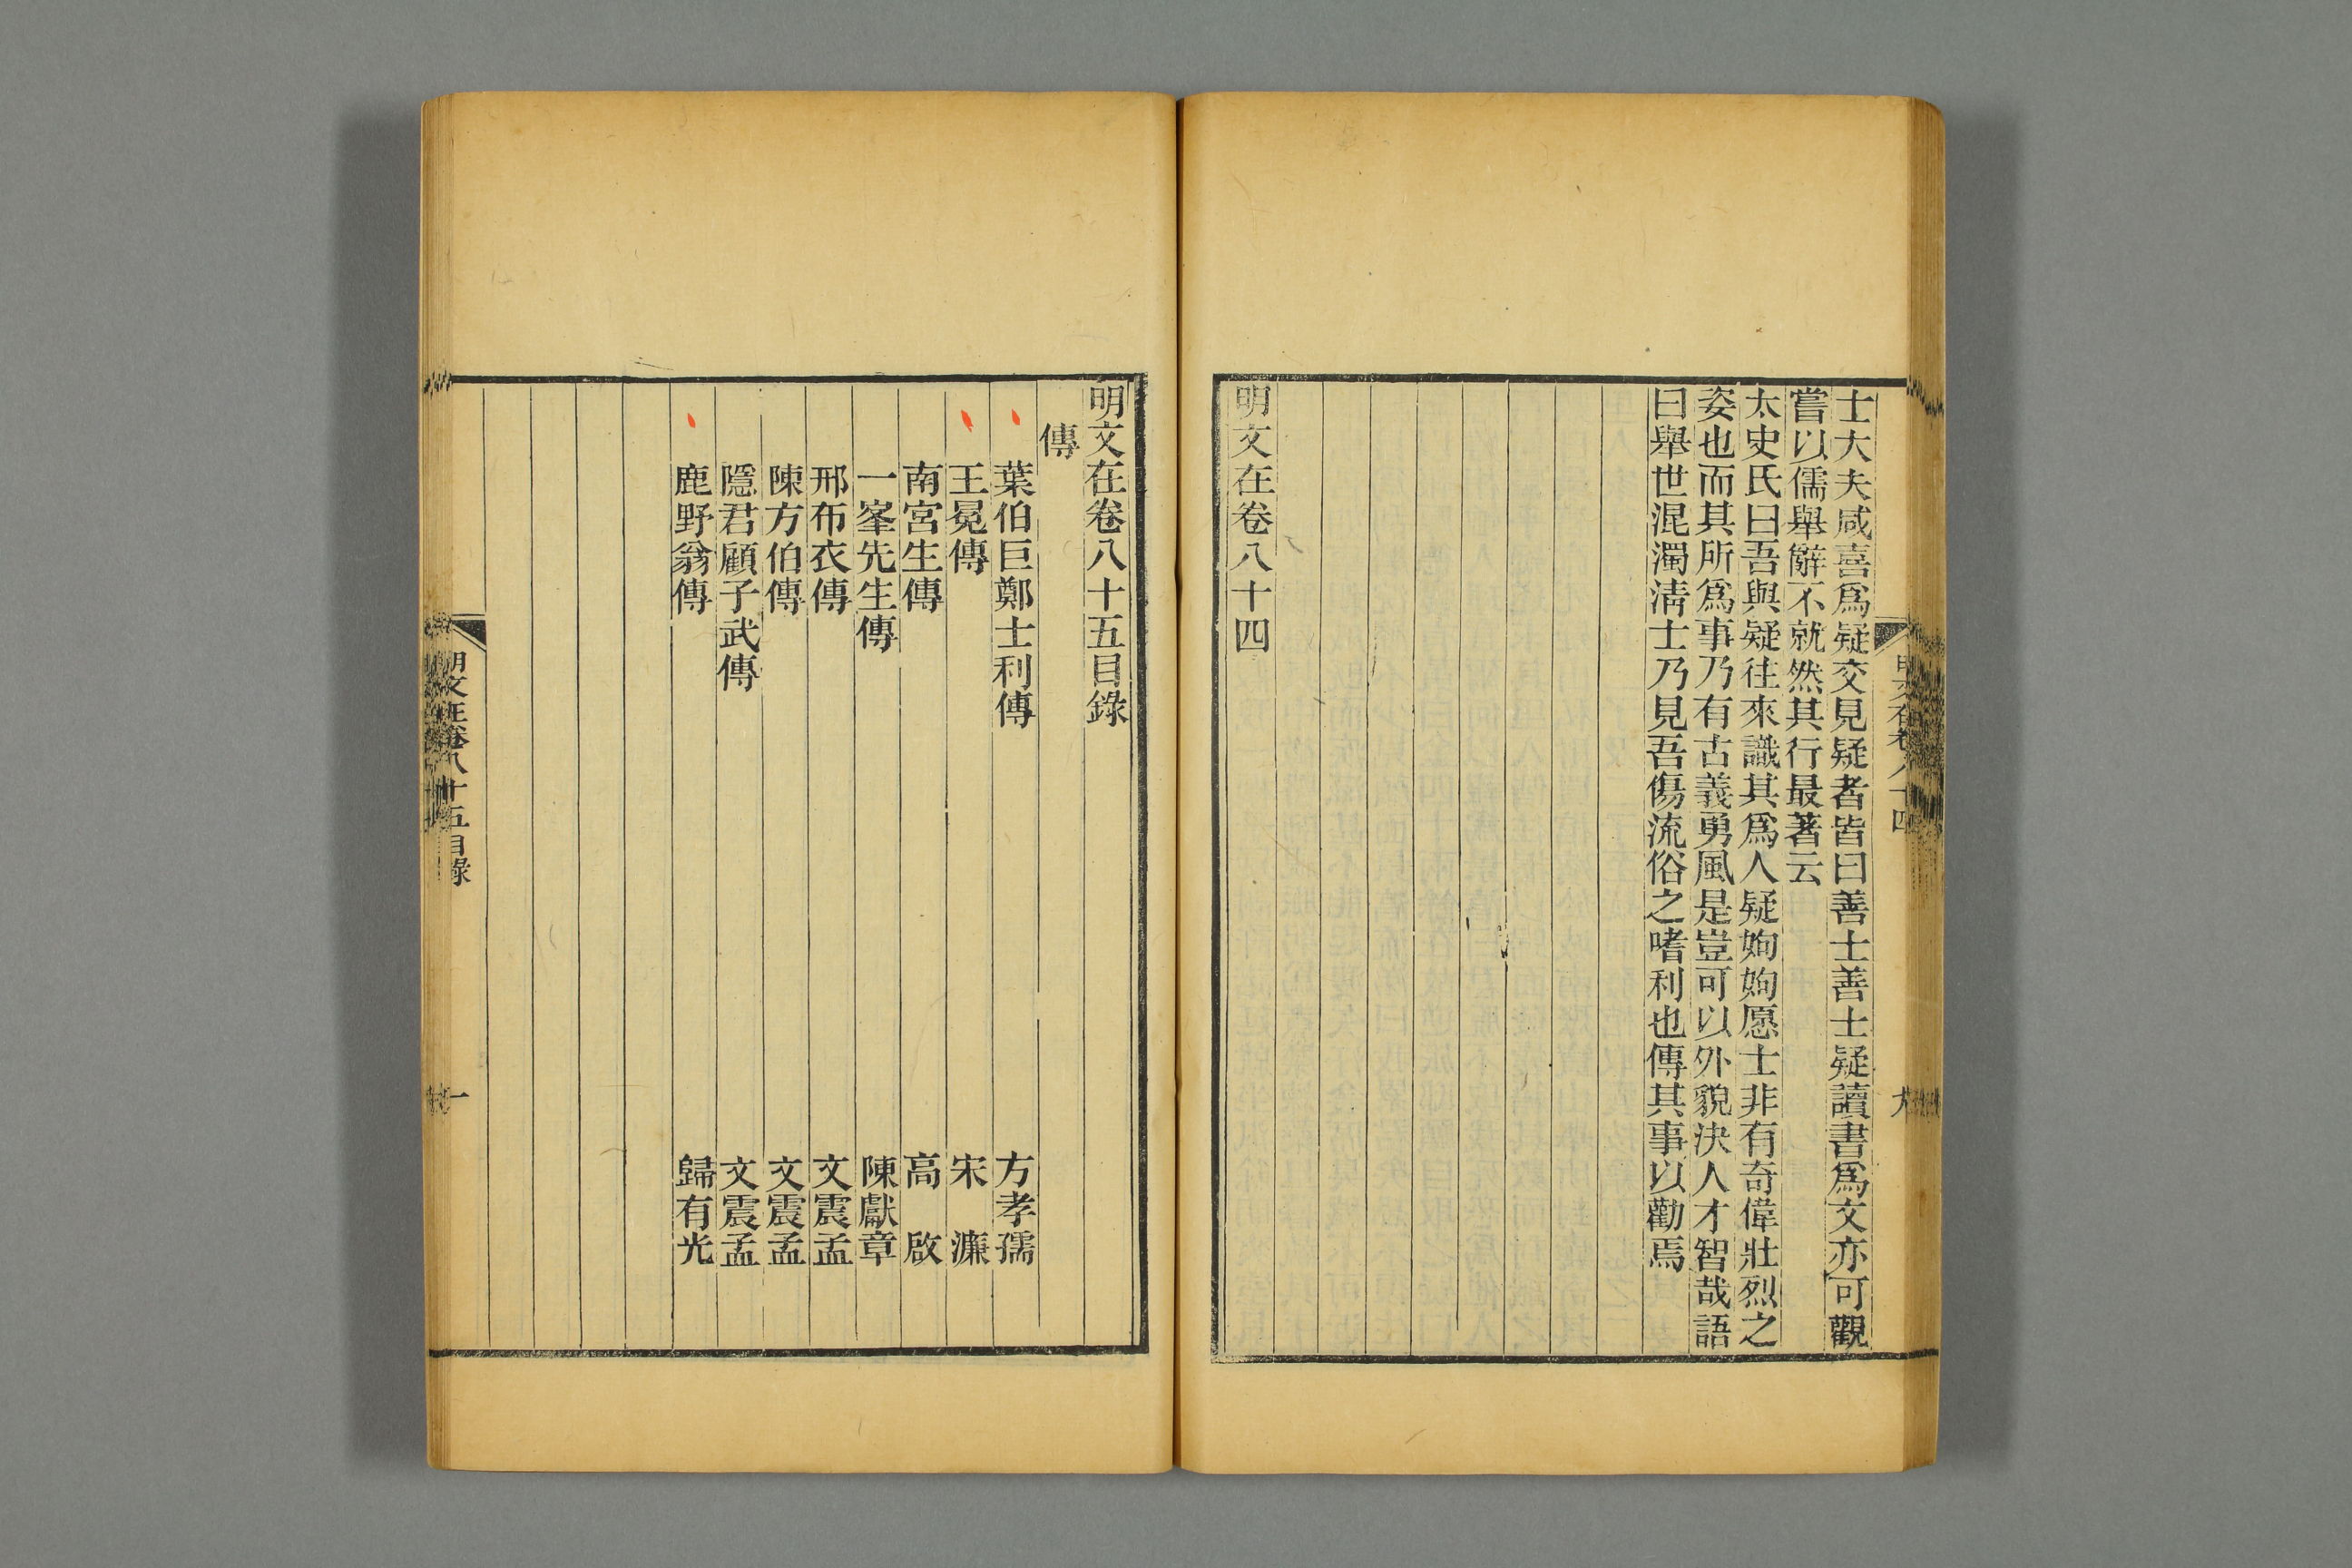 士大夫咸喜爲疑交見疑者皆曰善士善士疑讀書爲文亦可觀
嘗以儒舉辭不就然其行最著云
太史氏曰吾與疑往來識其爲人疑姁姁愿士非有奇偉壯烈之
姿也而其所爲事乃有古義勇風是豈可以外貌決人才智哉語
曰舉世混濁淸士乃見吾傷流俗之嗜利也傳其事以勸焉
明文在卷八十四
明文在卷八十四
九
明文在卷八十五目錄
傳
葉伯巨鄭士利傳 方孝孺
王冕傳 宋濂
南宮生傳 高啟
一峯先生傳 陳獻章
邢布衣傳 文震孟
陳方伯傳 文震孟
隱君顧子武傳 文震孟
鹿野翁傳 歸有光
明文在卷八十五目錄
一